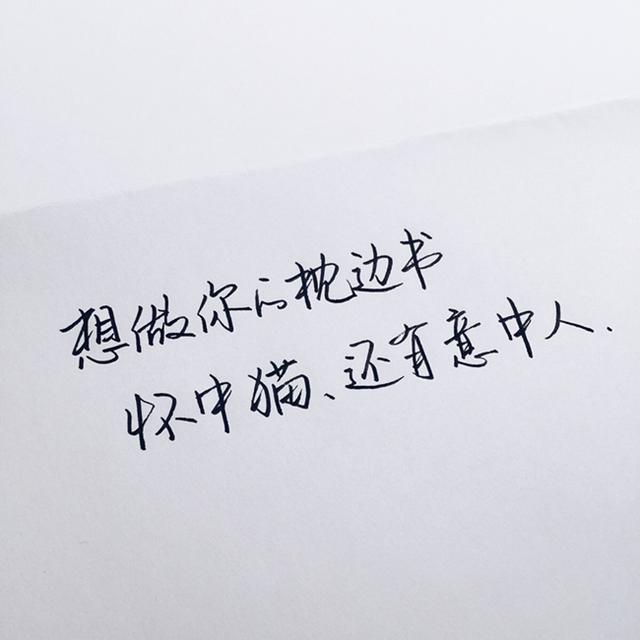 想做你心枕边书
怀中猫、还有意中人.